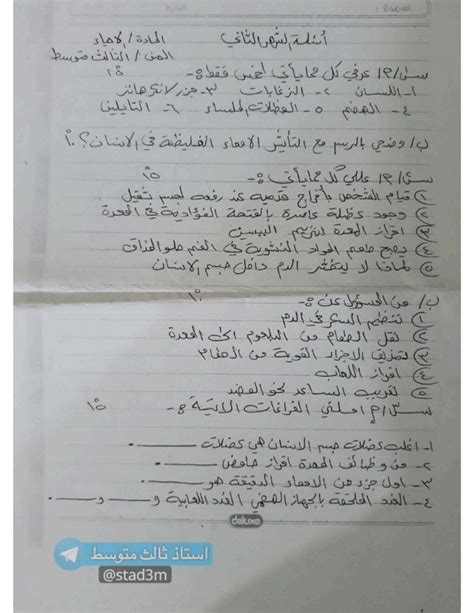 الموضوع :
التاريخ
أسئلة الشهر الثاني
المادة / الاحياء
الصف / الثالث متوسط
س١/ P عرفي كل مما يأتي لخمس فقط :- ١٥
١- اللسان ٢- الزغابات ٣- جزر لانكرهانز
٤- الهضم ٥- العضلات الملساء ٦- التايلين
ب/ وضحي بالرسم مع التأشير الامعاء الغليظة في الانسان؟ ١٠
س٢/ P عللي كل مما يأتي :- ١٥
① قيام الشخص بأفراج قدميه عند رفعه لجسم ثقيل
② وجود عضلة عاصرة بالفتحة الفؤادية في المعدة
③ افراز المعدة انزيم الببسين
④ يصبح طعم المواد النشوية في الفم حلو المذاق
⑤ لماذا لا يتخثر الدم داخل جسم الانسان
ب/ من المسؤول عن :- ١٠
① تنظيم السكر في الدم
② نقل الطعام من البلعوم الى المعدة
③ تمزيق الاجزاء القوية من الطعام
④ افراز اللعاب
⑤ تقريب الساعد نحو العضد
س٣/ P املئي الفراغات الاتية :- ١٥
١- اغلب عضلات جسم الانسان هي عضلات
٢- من وظائف المعدة افراز حامض
٣- اول جزء من الامعاء الدقيقة هو
٤- الغدد الملحقة بالجهاز الهضمي الغدد اللعابية و و
deluxe
استاذ ثالث متوسط
@stad3m